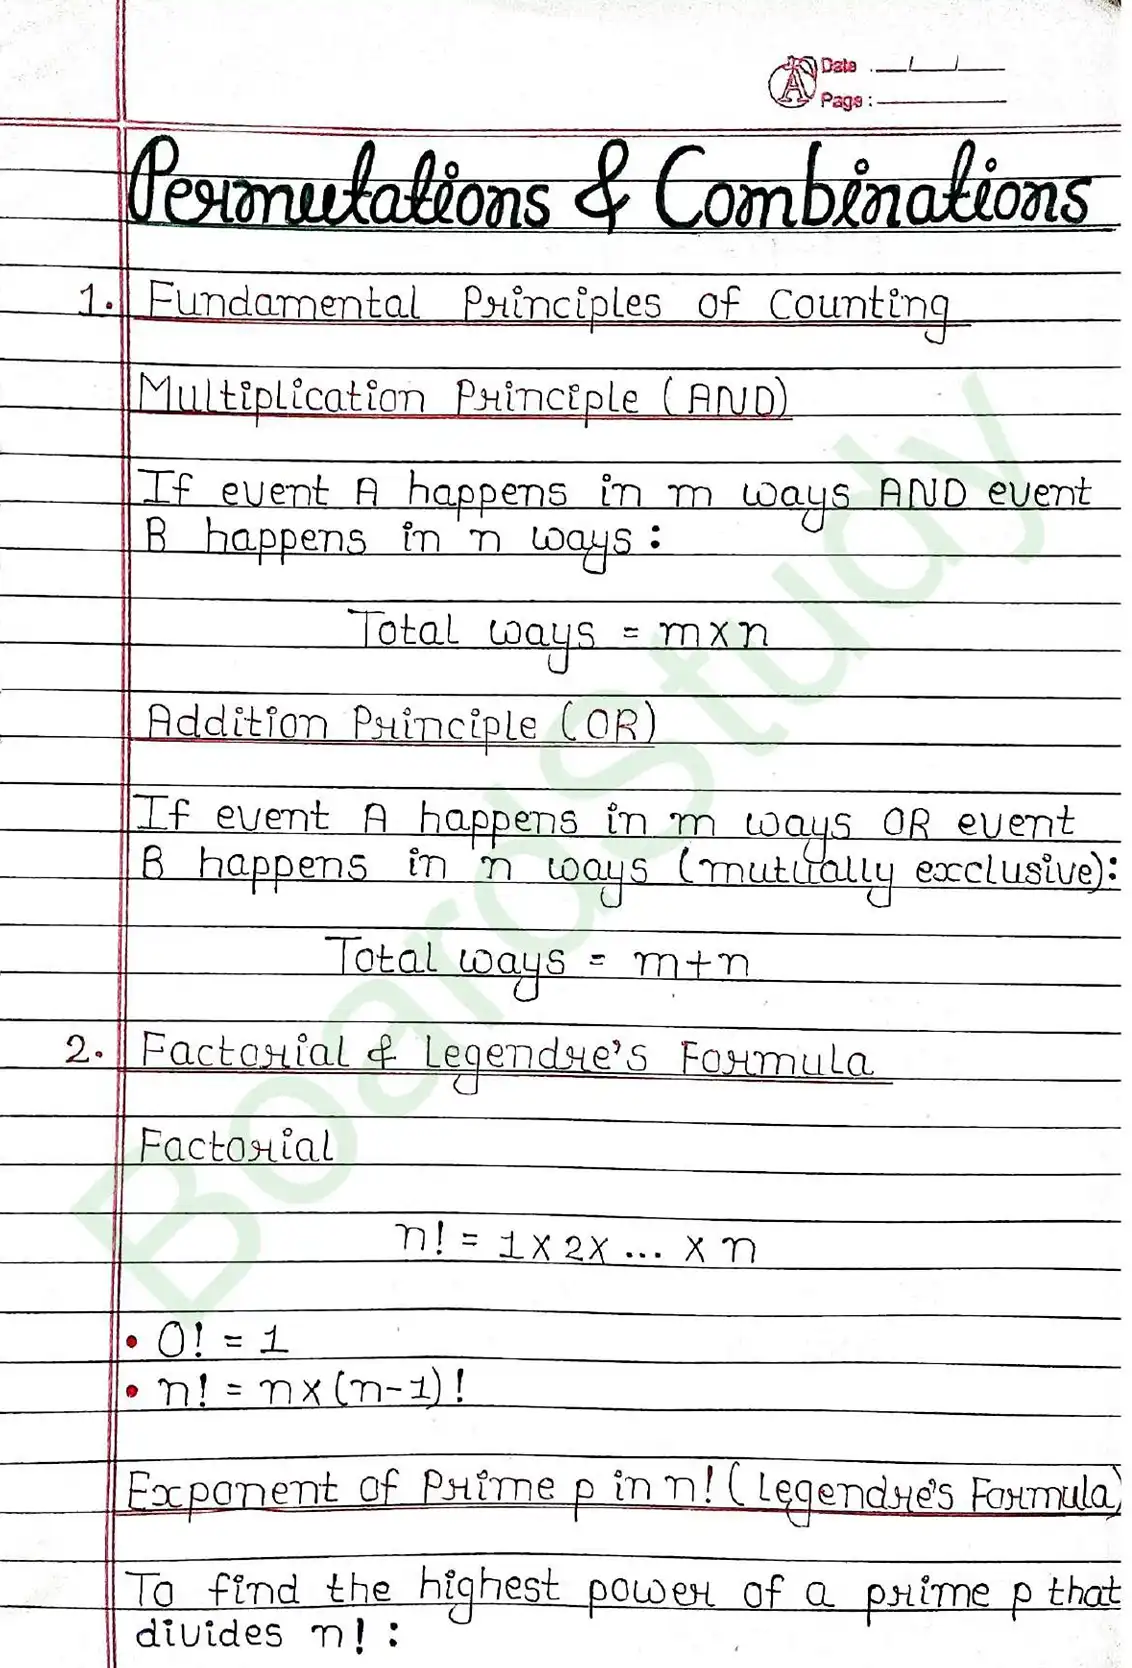 Date : __/__/__
Page :
Permutations & Combinations
1. Fundamental Principles of Counting
Multiplication Principle (AND)
If event A happens in m ways AND event
B happens in n ways :
Total ways = m×n
Addition Principle (OR)
If event A happens in m ways OR event
B happens in n ways (mutually exclusive):
Total ways = m+n
2. Factorial & Legendre's Formula
Factorial
n! = 1 × 2 × ... × n
• 0! = 1
• n! = n × (n-1)!
Exponent of Prime p in n! (Legendre's Formula)
To find the highest power of a prime p that
divides n! :
BoardStudy